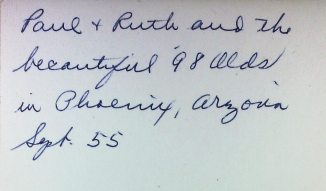 Paul + Ruth and the
beecautiful '98 Olds
in Phoenix, Arzona
Sept. 55